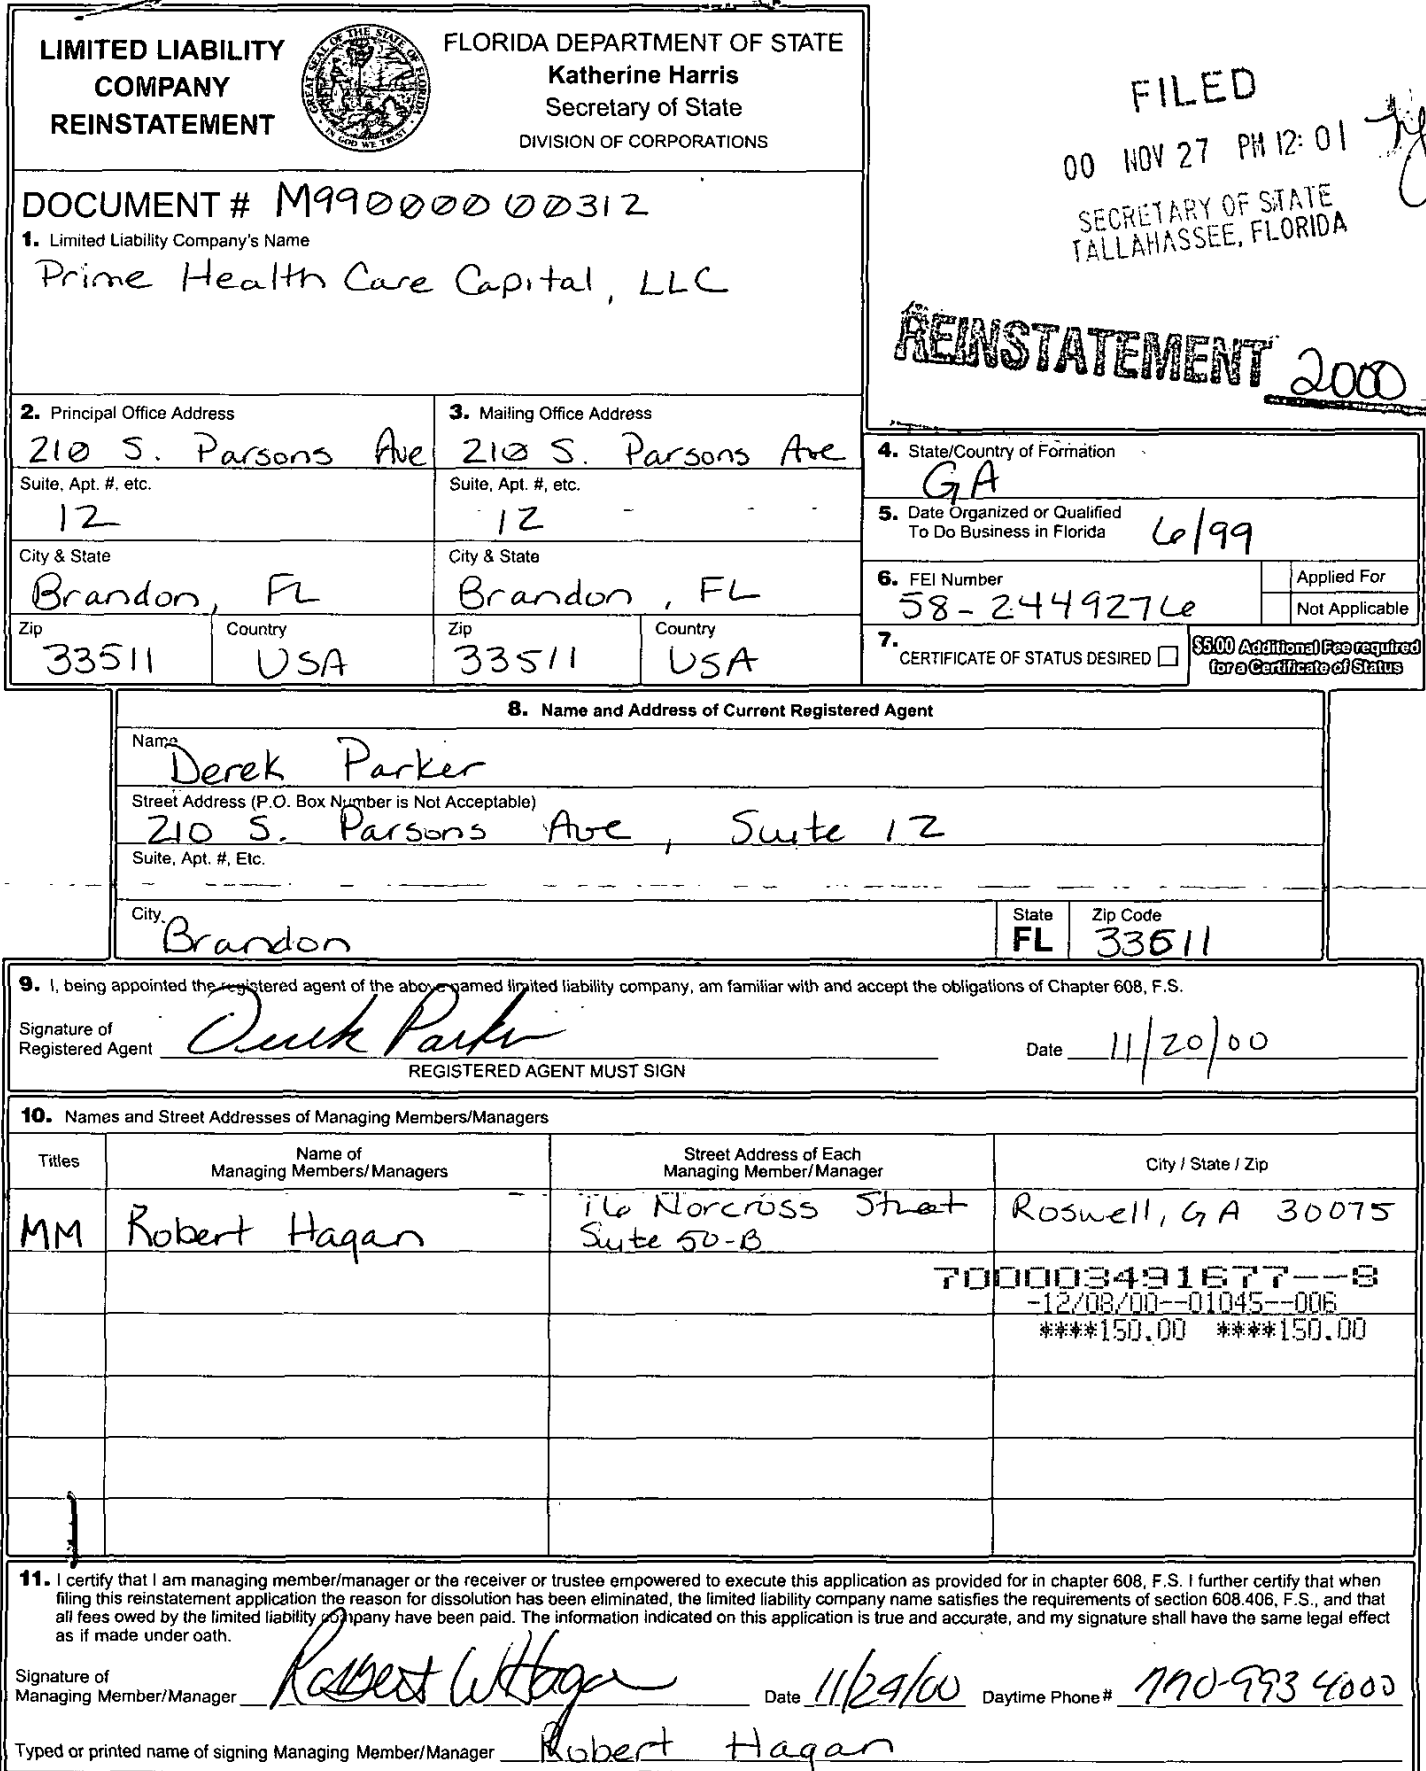 LIMITED LIABILITY
COMPANY
REINSTATEMENT
GREAT SEAL OF THE STATE OF FLORIDA
IN GOD WE TRUST
FLORIDA DEPARTMENT OF STATE
Katherine Harris
Secretary of State
DIVISION OF CORPORATIONS
FILED
00 NOV 27 PM 12: 01
SECRETARY OF STATE
TALLAHASSEE, FLORIDA
DOCUMENT # M99000000312
1. Limited Liability Company's Name
Prime Health Care Capital, LLC
REINSTATEMENT 2000
2. Principal Office Address
210 S. Parsons Ave
Suite, Apt. #, etc.
12
City & State
Brandon, FL
Zip
33511
Country
USA
3. Mailing Office Address
210 S. Parsons Ave
Suite, Apt. #, etc.
12
City & State
Brandon, FL
Zip
33511
Country
USA
4. State/Country of Formation
GA
5. Date Organized or Qualified
To Do Business in Florida 6/99
6. FEI Number
58-2449276
Applied For
Not Applicable
7. CERTIFICATE OF STATUS DESIRED
$5.00 Additional Fee required
for a Certificate of Status
8. Name and Address of Current Registered Agent
Name
Derek Parker
Street Address (P.O. Box Number is Not Acceptable)
210 S. Parsons Ave, Suite 12
Suite, Apt. #, Etc.
City
Brandon
State
FL
Zip Code
33511
9. I, being appointed the registered agent of the above named limited liability company, am familiar with and accept the obligations of Chapter 608, F.S.
Signature of
Registered Agent Derek Parker
Date 11/20/00
REGISTERED AGENT MUST SIGN
10. Names and Street Addresses of Managing Members/Managers
Titles
Name of
Managing Members/Managers
Street Address of Each
Managing Member/Manager
City / State / Zip
MM
Robert Hagan
76 Norcross Street
Suite 50-B
Roswell, GA 30075
700003491677--8
-12/08/00--01045--006
****150.00 ****150.00
11. I certify that I am managing member/manager or the receiver or trustee empowered to execute this application as provided for in chapter 608, F.S. I further certify that when
filing this reinstatement application the reason for dissolution has been eliminated, the limited liability company name satisfies the requirements of section 608.406, F.S., and that
all fees owed by the limited liability company have been paid. The information indicated on this application is true and accurate, and my signature shall have the same legal effect
as if made under oath.
Signature of
Managing Member/Manager Robert W Hagan
Date 11/29/00
Daytime Phone # 770-993 4000
Typed or printed name of signing Managing Member/Manager Robert Hagan